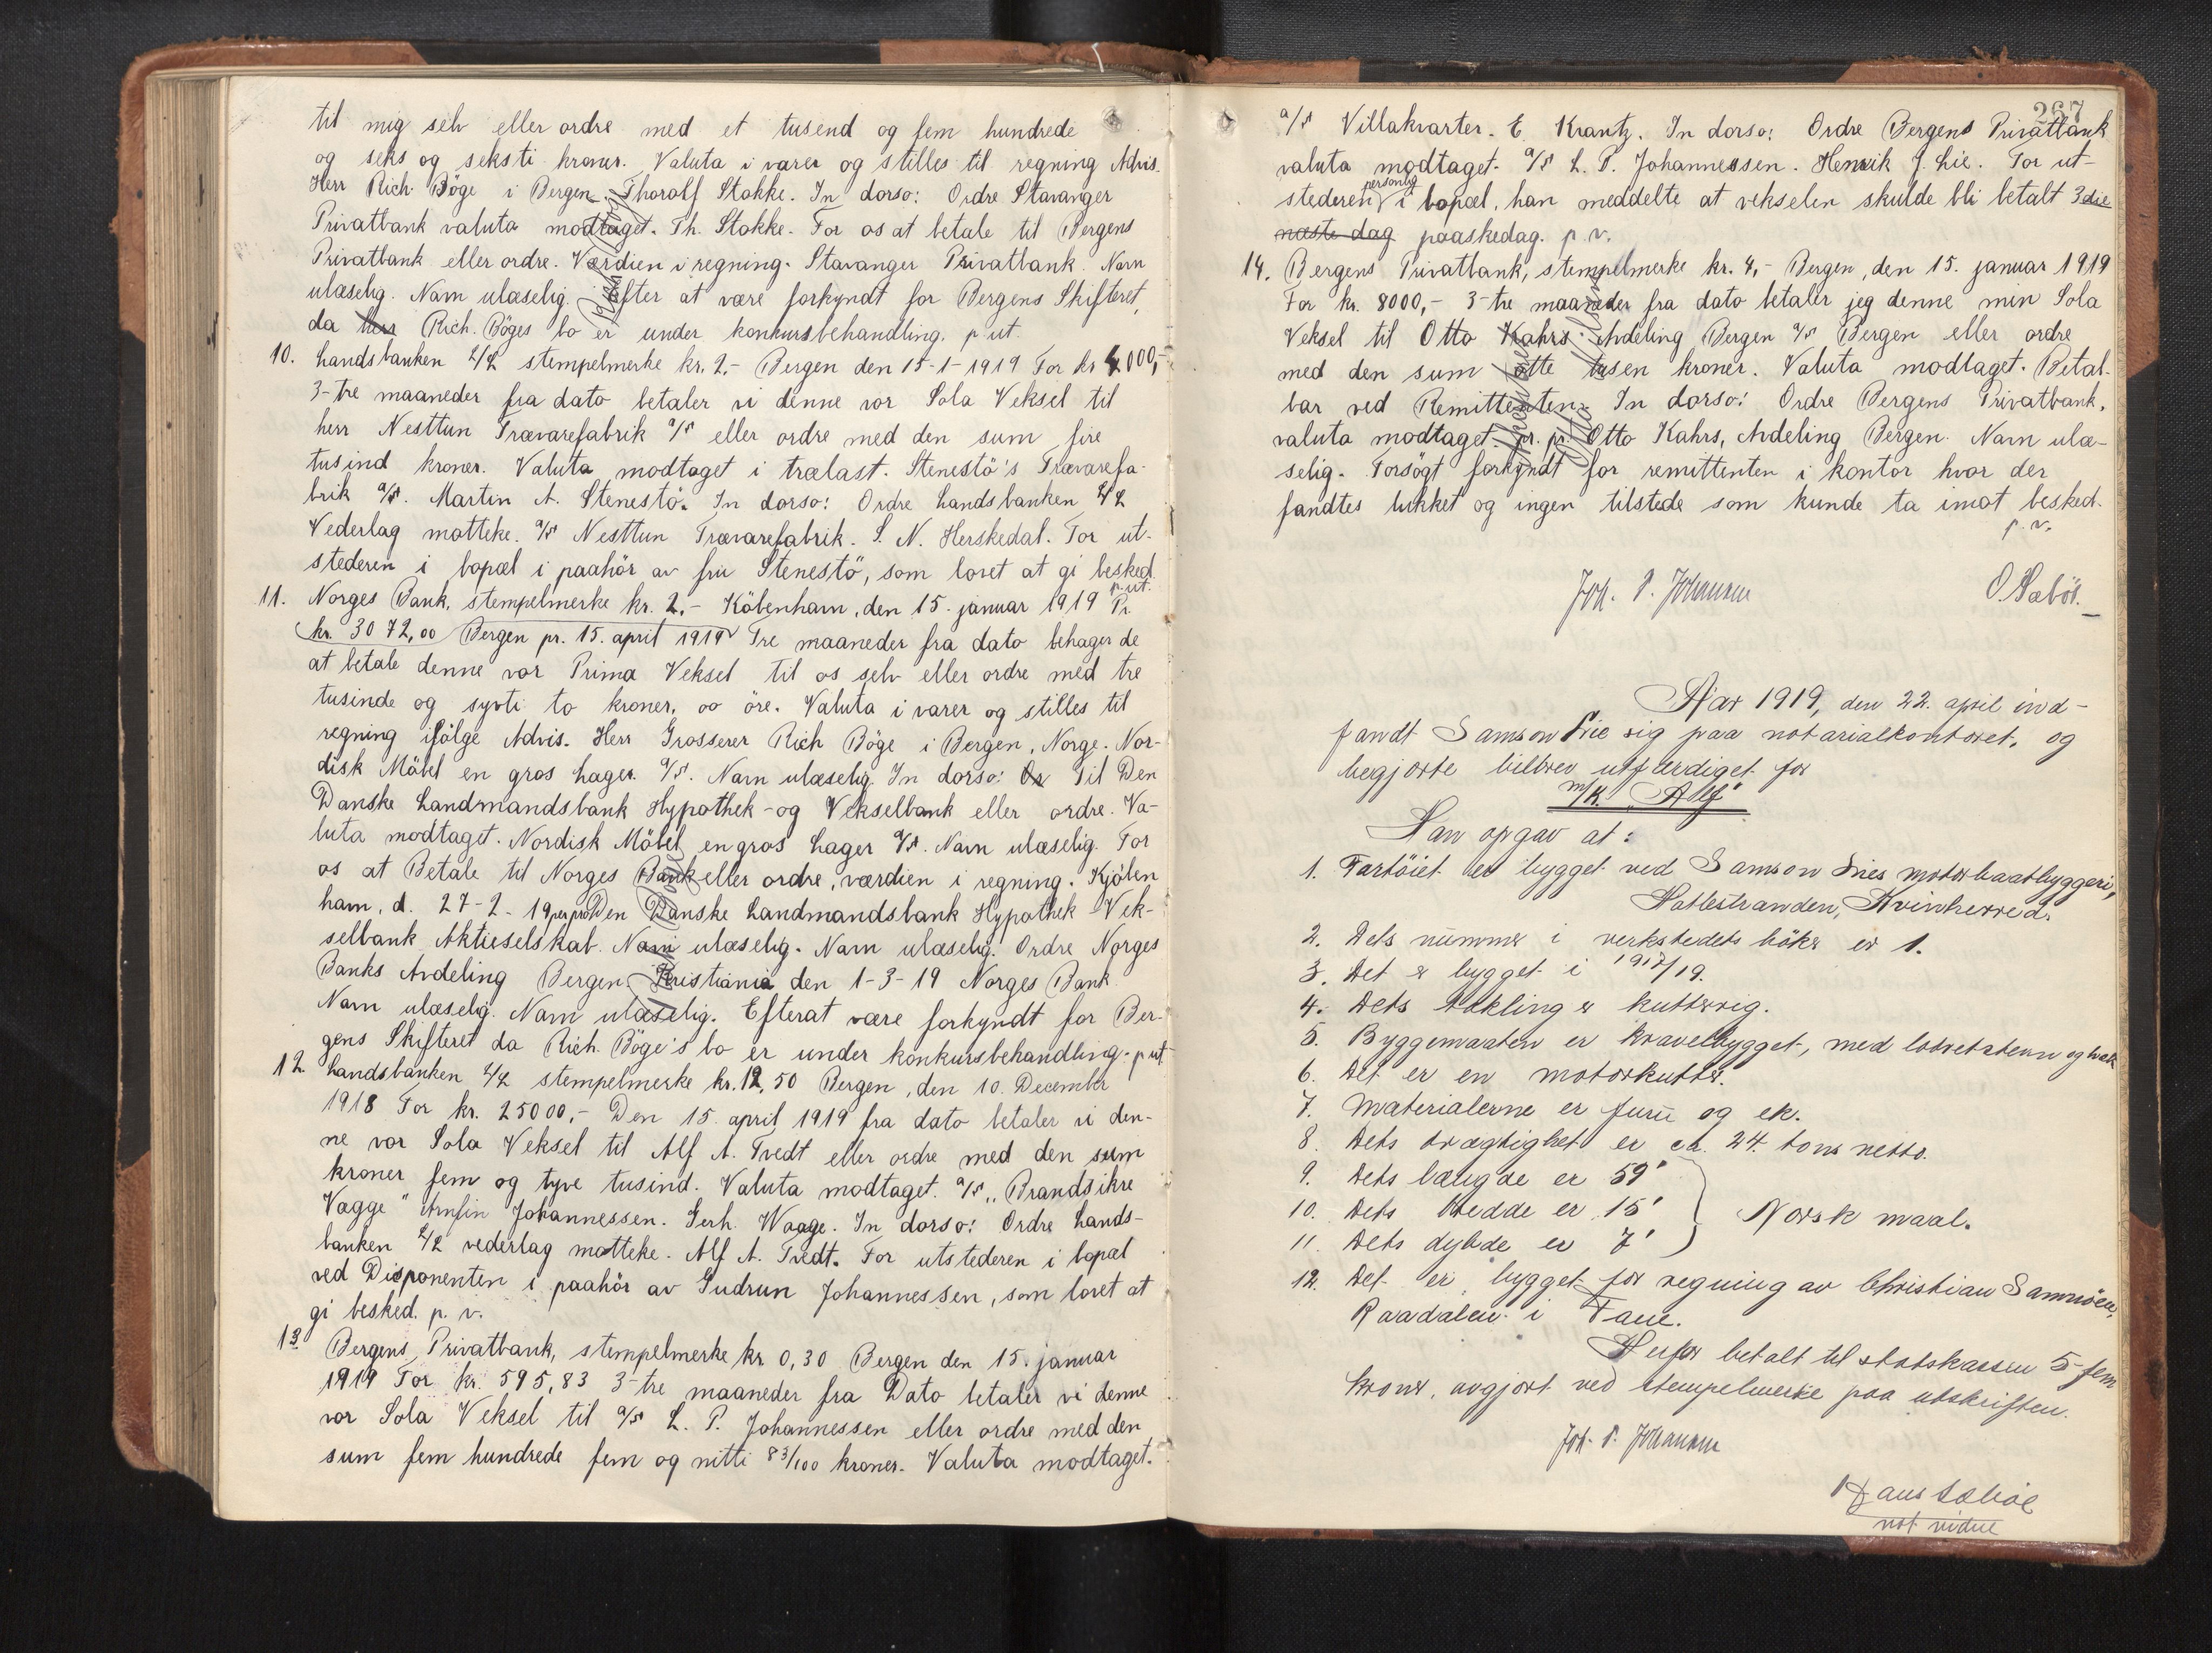 til mig selv eller ordre med et tusend og fem hundrede
og seks og seksti kroner. Valuta i varer og stilles til regning Advis.
Herr Rich Böge i Bergen. Thorolf Stokke. In dorso: Ordre Stavanger
Privatbank valuta modtaget. Th. Stokke. For os at betale til Bergens
Privatbank eller ordre. Værdien i regning. Stavanger Privatbank. Navn
ulæselig. Navn ulæselig. Efter at være forkyndt for Bergens Skifteret,
da herr Rich. Böges bo er under konkursbehandling. p ut.
10. Landsbanken A/L stempelmerke kr. 2,- Bergen den 15-1-1919 For kr 4000,-
3-tre maaneder fra dato betaler vi denne vor Sola Veksel til
herr Nesttun Trævarefabrik A/S eller ordre med den sum fire
tusind kroner. Valuta modtaget i trælast. Stenestö's Trævarefa-
brik A/S. Martin A. Stenestö. In dorso: Ordre Landsbanken A/L
Vederlag motteke. A/S Nesttun Trævarefabrik. S. N. Herskedal. For ut-
stederen i bopæl i paahör av fru Stenestö, som lovet at gi besked
p. ut.
11. Norges Bank, stempelmerke kr. 2,- Köbenhavn, den 15. januar 1919 Pr.
kr. 3072,00 Bergen pr. 15. april 1919 Tre maaneder fra dato behager de
at betale denne vor Prima Veksel til os selv eller ordre med tre
tusinde og sytti to kroner, oo öre. Valuta i varer og stilles til
regning ifölge Advis. Herr Grosserer Rich Böge i Bergen, Norge. Nor-
disk Möbel en gros Lager A/S. Navn ulæselig. In dorso: Or Til Den
Danske Landmandsbank Hypothek- og Vekselbank eller ordre. Va-
luta modtaget. Nordisk Möbel en gros Lager A/S. Navn ulæselig. For
os at Betale til Norges Bank eller ordre, værdien i regning. Kjöben
havn, d. 27-2-19 per pro Den Danske Landmandsbank Hypothek Vek-
selbank Aktieselskab. Navn ulæselig. Navn ulæselig. Ordre Norges
Banks Avdeling Bergen. Kristiania den 1-3-19 Norges Bank
Navn ulæselig. Navn ulæselig. Efterat være forkyndt for Ber-
gens Skifteret da Rich. Böge's bo er under konkursbehandling. p ut
12 Landsbanken A/L stempelmerke kr. 12,50 Bergen, den 10. December
1918 For kr. 25000,- Den 15. april 1919 fra dato betaler vi den-
ne vor Sola Veksel til Alf A. Tvedt eller ordre med den sum
kroner fem og tyve tusind. Valuta modtaget. A/S „Brandsikre
Vægge" Arnfin Johannessen. Gerh. Waage. In dorso: Ordre Lands-
banken A/L vederlag motteke. Alf A. Tvedt. For utstederen i bopæl
ved Disponenten i paahör av Gudrun Johannessen, som lovet at
gi besked. p. v.
13 Bergens Privatbank, stempelmerke kr 0,30 Bergen den 15. januar
1919 For kr. 595,83 3-tre maaneder fra Dato betaler vi denne
vor Sola Veksel til A/S L. P. Johannessen eller ordre med den
sum fem hundrede fem og nitti 83/100 kroner. Valuta modtaget.
267
A/S Villakvarter. E. Krantz. In dorso: Ordre Bergens Privatbank
valuta modtaget. A/S L. P. Johannessen. Henrik J. Lie. For ut-
stederen personlig i bopæl, han meddelte at vekselen skulde bli betalt 3die
næste dag paaskedag. p. v.
14. Bergens Privatbank, stempelmerke kr. 4,- Bergen, den 15. januar 1919
For kr. 8000,- 3-tre maaneder fra dato betaler jeg denne min Sola
Veksel til Otto Kahrs Avdeling Bergen A/S Bergen eller ordre
med den sum otte tusen kroner. Valuta modtaget. Betal-
bar ved Remittenten. In dorso: Ordre Bergens Privatbank,
valuta modtaget. pr. pr. Otto Kahrs, Avdeling Bergen. Navn ulæ-
selig. Forsögt forkyndt for remittenten i kontor hvor der
fandtes lukket og ingen tilstede som kunde ta imot besked.
p. v.
Joh. P. Johannsen O. Sæböe.
Aar 1919, den 22. april ind-
fandt Samson Nie sig paa notarialkontoret, og
begjærte bilbrev utfærdiget for
m/k. "Alf"
Han opgav at:
1. Fartöiet er bygget ved Samson Nies motorbaatbyggeri,
Hatlestranden, Kvinherred.
2. Dets nummer i verkstedets böker er 1.
3. Det er bygget i 1917/19.
4. Dets takling er kutterrig.
5. Byggemaaten er kravelbygget, med lodretstevn og hæk
6. Det er en motorkutter.
7. Materialerne er furu og ek.
8 Dets drægtighet er ca. 24. tons netto.
9. Dets længde er 59'
10. Dets bredde er 15' Norsk maal.
11. Dets dybde er 7'
12. Det er bygget for regning av Christian Samnöen,
Raadalen i Fane.
Herfor betalt til statskassen 5-fem
kroner, avgjort ved stempelmerke paa utskriften.
Joh. P. Johannsen
Hans Sæböe
not vidne